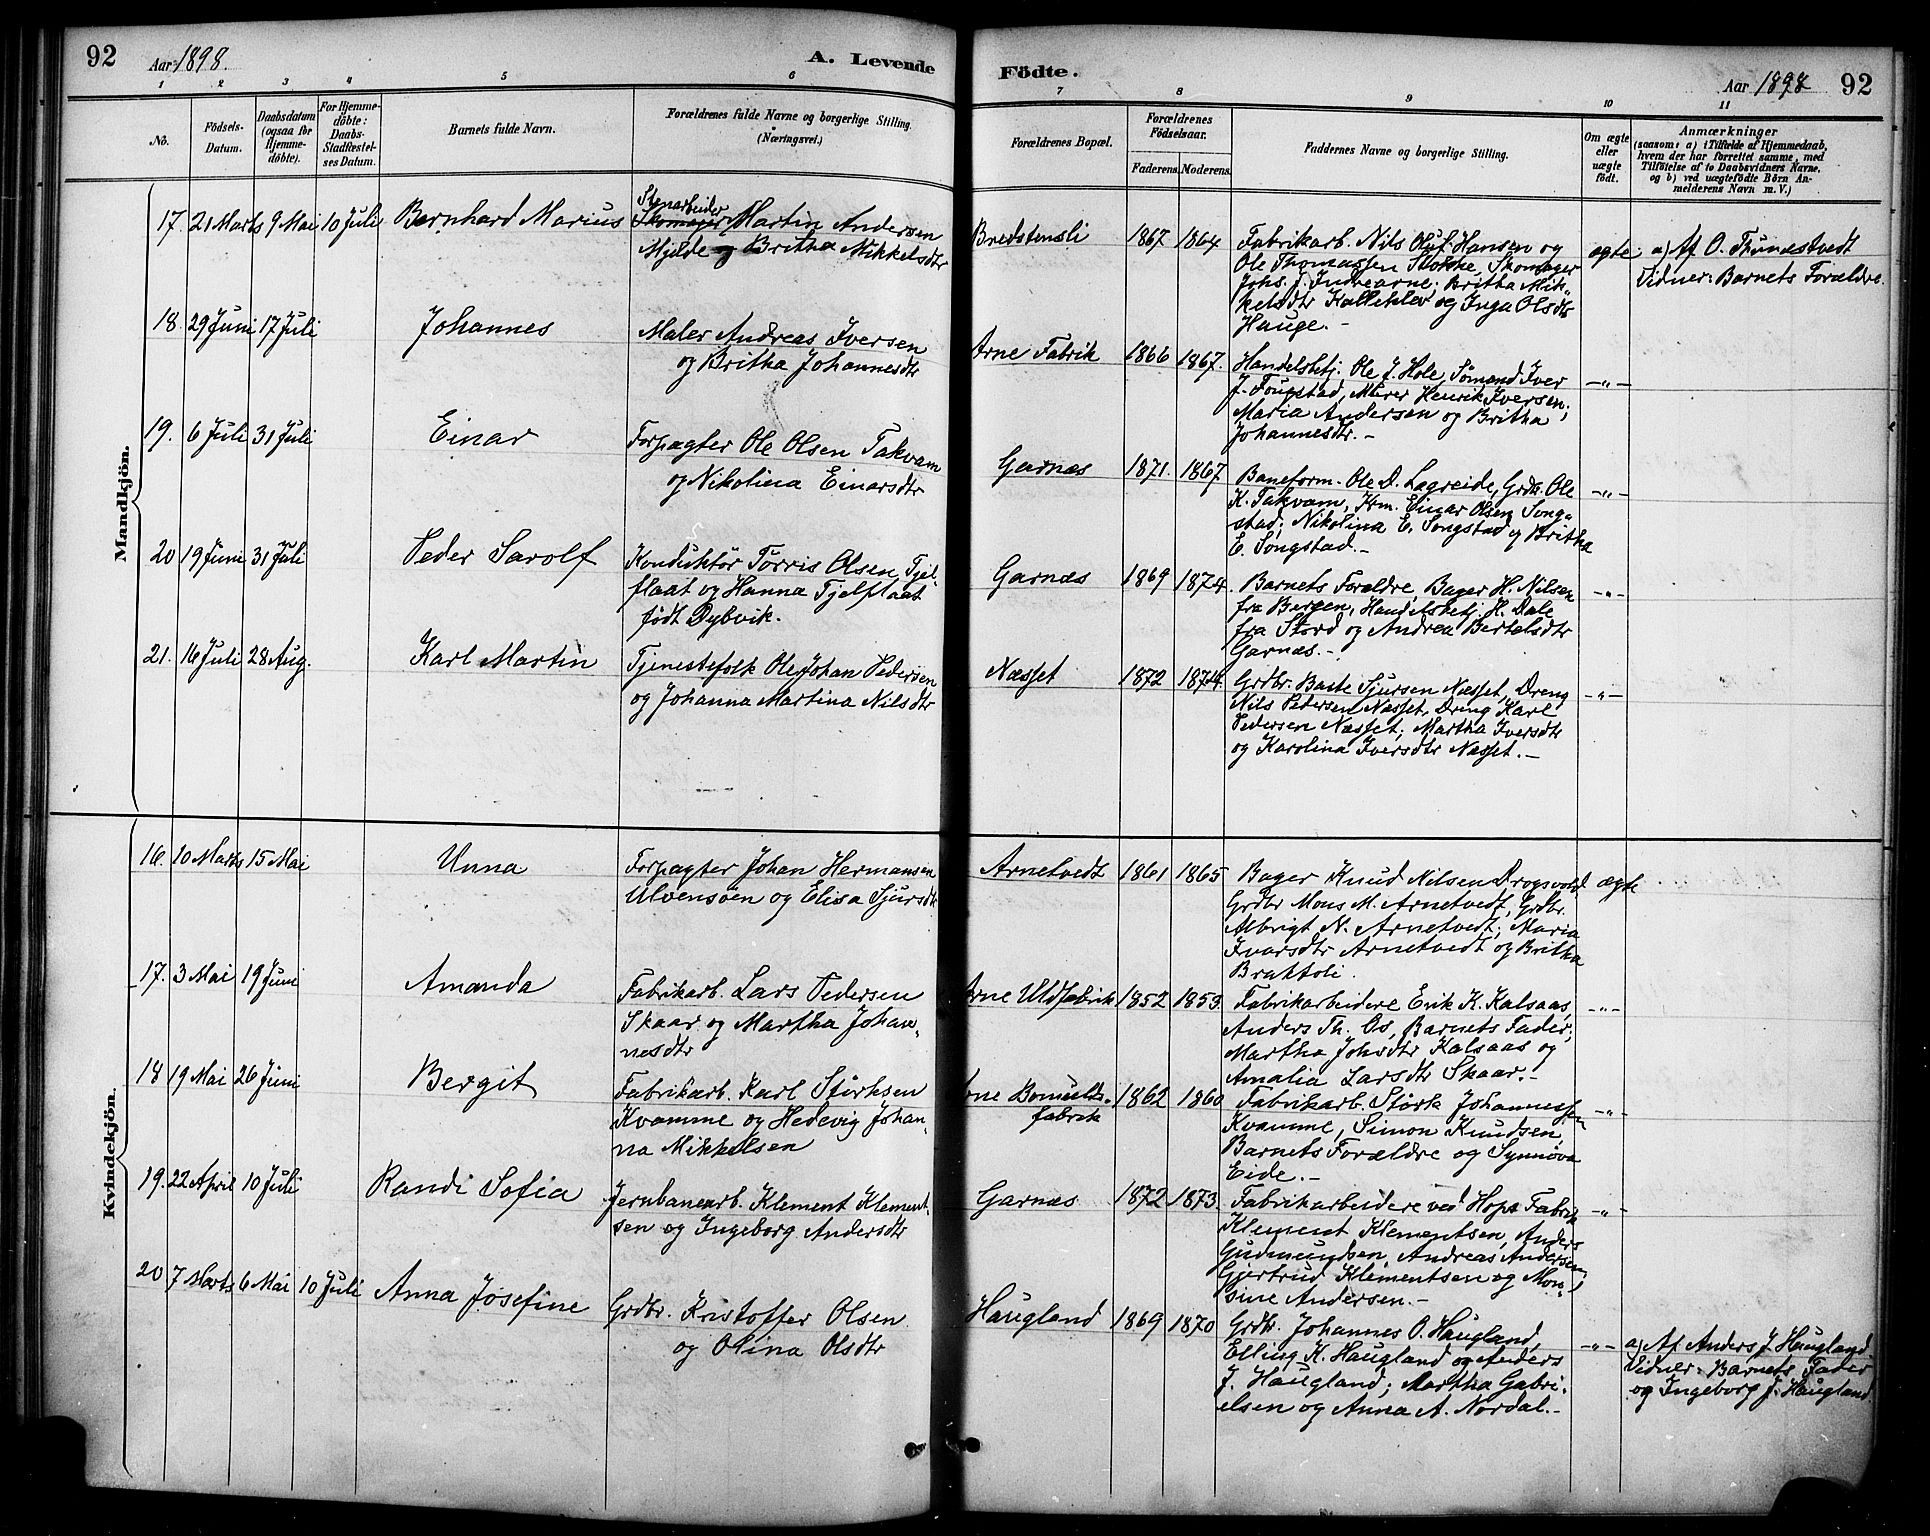 92
Aar 1898.
A. Levende
1 2 3 4 5 6
No.
Födsels-
Datum.
Daabsdatum
(ogsaa for
Hjemme-
döbte).
For Hjemme-
döbte:
Daabs-
Stadfæstel-
ses Datum.
Barnets fulde Navn.
Forældrenes fulde Navne og borgerlige Stilling.
(Næringsvei.)
Mandkjön.
17. 21 Marts 9 Mai 10 Juli Bernhard Marius
Stenarbeider
Skomager Martin Andersen
Mjelde og Britha Mikkelsdtr
18. 29 Juni 17 Juli Johannes
Maler Andreas Iversen
og Britha Johannesdtr
19. 6 Juli 31 Juli Einar
Forpagter Ole Olsen Takvam
og Nikolina Einarsdtr
20 19 Juni 31 Juli Peder Sarolf
Konduktør Torris Olsen Tjel-
flaat og Hanna Tjelflaat
født Dybvik.
21. 16 Juli 28 Aug. Karl Martin
Tjenestefolk Ole Johan Pedersen
og Johanna Martina Nilsdtr
Kvindekjön.
16. 10 Marts 15 Mai Unna
Forpagter Johan Hermansen
Ulvensøen og Elisa Sjursdtr
17. 3 Mai 19 Juni Amanda
Fabrikarb. Lars Pedersen
Skaar og Martha Johan-
nesdtr
18 19 Mai 26 Juni Bergit
Fabrikarb. Karl Størksen
Kvamme og Hedevig Johan-
na Mikkelsen
19. 22 April 10 Juli Randi Sofia
Jernbanearb. Klement Klement-
sen og Ingeborg Andersdtr
20 7 Marts 6 Mai 10 Juli Anna Josefine
Grdbr. Kristoffer Olsen
og Olina Olsdtr
Födte.
Aar 1898
92
7 8 9 10 11
Forældrenes Bopæl.
Forældrenes
Födselsaar.
Faderens. Moderens.
Faddernes Navne og borgerlige Stilling.
Om ægte
eller
uægte
født.
Anmærkninger
(saasom: a) i Tilfælde af Hjemmedaab,
hvem der har forrettet samme, med
Tilföielse af to Daabsvidners Navne,
og b) ved uægtefödte Börn An-
melderens Navn m. V.)
Bredstensli 1867 1864
Fabrikarb. Nils Oluf Hansen og
Ole Thomassen Stokke, Skomager
Johs. J. Indrearne; Britha Mik-
kelsdtr Kalleklev og Inga Olsdtr
Hauge. -
ægte
a) Af O. Thunæstvedt
Vidner: Barnets Forældre
Arne Fabrik 1866 1867.
Handelsbetj. Ole J. Hole, Sømand Iver
J. Fougstad, Murer Henrik Iversen;
Maria Andersen og Britha
Johannesdtr. -
-"-
Garnæs 1871. 1867
Baneform. Ole D. Lagreide, Grdbr. Ole
K. Takvam, Krm. Einar Olsen Song-
stad; Nikolina E. Songstad og Britha
E. Songstad. -
-"-
Garnæs 1869 1874.
Barnets Forældre, Bager H. Nilsen
fra Bergen, Handelsbetj. H. Dale
fra Stord og Andrea Bertelsdtr
Garnæs. -
-"-
Næsset 1872 1874.
Grdbr. Baste Sjursen Næsset, Dreng
Nils Pedersen Næsset, Dreng Karl
Pedersen Næsset; Martha Iversdtr
og Karolina Iversdtr Næsset. -
-"-
Arnetvedt 1861 1865
Bager Knud Nilsen Drogsvold,
Grdbr Mons M. Arnetvedt, Grdbr.
Albrigt N. Arnetvedt; Maria
Ivarsdtr Arnetvedt og Britha
Braktoli.
ægte
Arne Uldfabrik 1852 1853.
Fabrikarbeidere Erik K. Kalsaas,
Anders Th. Os, Barnets Fader;
Martha Johsdtr Kalsaas og
Amalia Larsdtr Skaar. -
-"-
Arne Bomulds-
fabrik
1862 1860
Fabrikarb. Størk Johannessen
Kvamme, Simon Knudsen,
Barnets Forældre og Synnøva
Eide. -
-"-
Garnæs 1872 1873.
Fabrikarbeidere ved Hops Fabrik
Klement Klementsen, Anders
Gudmundsen, Andreas Andersen;
Gjertrud Klementsen og Mon-
sine Andersen. -
-"-
Haugland 1869 1870
Grdbr. Johannes O. Haugland,
Elling K. Haugland og Anders
J. Haugland; Martha Gabri-
elsen og Anna A. Nordal. -
-"-
a) Af Anders J. Haugland.
Vidner: Barnets Fader
og Ingeborg J. Haugland.